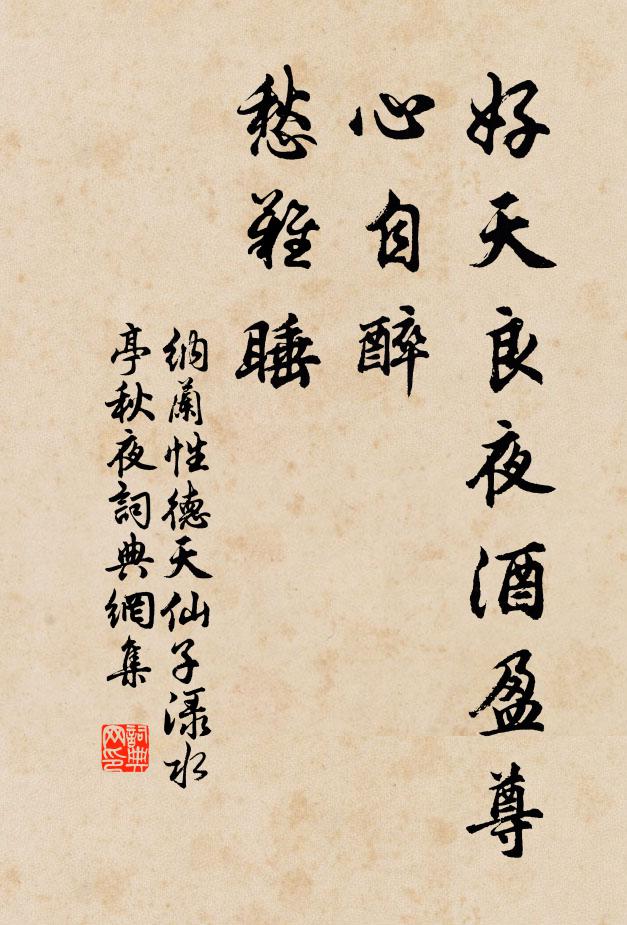 好天良夜酒盈尊
心自醉
愁難睡
納蘭性德天仙子淥水
亭秋夜詞典網集
詞典
网印